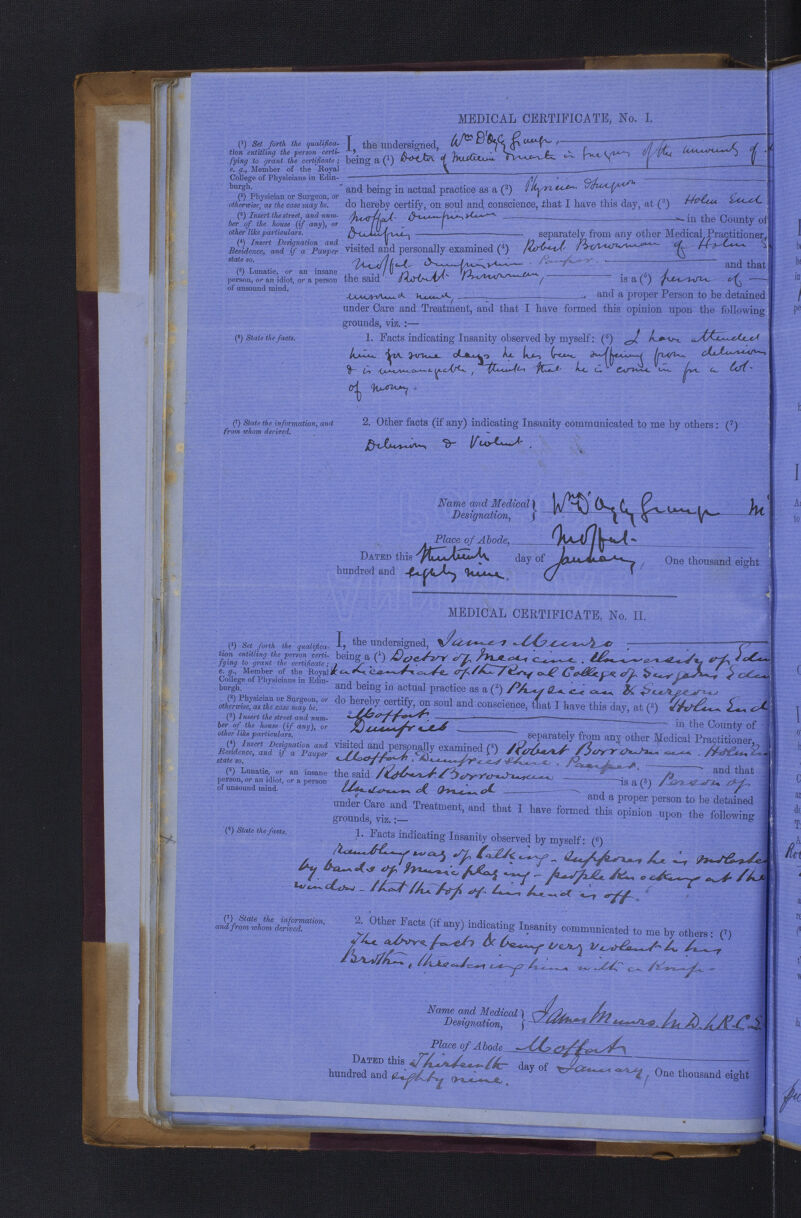 MEDICAL CERTIFICATE, No. I.
(¹) Set forth the qualifica-
tion entitling the person certi-
fying to grant the certificate;
e. g., Member of the Royal
College of Physicians in Edin-
burgh.
(²) Physician or Surgeon, or
otherwise, as the case may be.
(³) Insert the street, and num-
ber of the house (if any), or
other like particulars.
(⁴) Insert Designation and
Residence, and if a Pauper
state so.
(⁵) Lunatic, or an insane
person, or an idiot, or a person
of unsound mind.
I, the undersigned, Wm D'Oyly Grange,
being a (¹) Doctor of Medicine & Master in Surgery of the University of
and being in actual practice as a (²) Physician & Surgeon
do hereby certify, on soul and conscience, that I have this day, at (³) Holm End
Moffat Dumfriesshire in the County of
Dumfries separately from any other Medical Practitioner,
visited and personally examined (⁴) Robert Borrowman of Holm
Moffat Dumfriesshire Pauper. and that
the said Robert Borrowman, is a (⁵) person of
unsound mind, and a proper Person to be detained
under Care and Treatment, and that I have formed this opinion upon the following
grounds, viz. :—
(⁶) State the facts.
1. Facts indicating Insanity observed by myself: (⁶) I have attended
him for some days he has been suffering from delusions
& is unmanageable, thinks that he is come in for a lot
of money.
(⁷) State the information, and
from whom derived.
2. Other facts (if any) indicating Insanity communicated to me by others: (⁷)
Delusions & Violent.
Name and Medical Designation, Wm D'Oyly Grange M
Place of Abode, Moffat
DATED this thirteenth day of January, One thousand eight
hundred and eighty nine.
MEDICAL CERTIFICATE, No. II.
(¹) Set forth the qualifica-
tion entitling the person certi-
fying to grant the certificate;
e. g., Member of the Royal
College of Physicians in Edin-
burgh.
(²) Physician or Surgeon, or
otherwise, as the case may be.
(³) Insert the street and num-
ber of the house (if any), or
other like particulars.
(⁴) Insert Designation and
Residence, and if a Pauper
state so.
(⁵) Lunatic, or an insane
person, or an idiot, or a person
of unsound mind.
I, the undersigned, James Munro
being a (¹) Doctor of Medicine. University of Edin
& Licentiate of the Royal College of Surgeons Edin
and being in actual practice as a (²) Physician & Surgeon
do hereby certify, on soul and conscience, that I have this day, at (³) Holm End
Moffat. in the County of
Dumfries separately from any other Medical Practitioner,
visited and personally examined (⁴) Robert Borrowman. Holm
Moffat. Dumfriesshire. Pauper. and that
the said Robert Borrowman is a (⁵) Person of
Unsound mind and a proper person to be detained
under Care and Treatment, and that I have formed this opinion upon the following
grounds, viz. :—
(⁶) State the facts.
1. Facts indicating Insanity observed by myself: (⁶)
Rambling way of talking - Supposes he is moleste
by bands of music playing - people knocking at the
window - that the top of his head is off.
(⁷) State the information,
and from whom derived.
2. Other Facts (if any) indicating Insanity communicated to me by others: (⁷)
The above facts & being very violent to his
Brother, threatening him with a Knife.
Name and Medical Designation, James Munro. M.D. L.R.C.S
Place of Abode Moffat
DATED this Thirteenth day of January, One thousand eight
hundred and eighty nine.